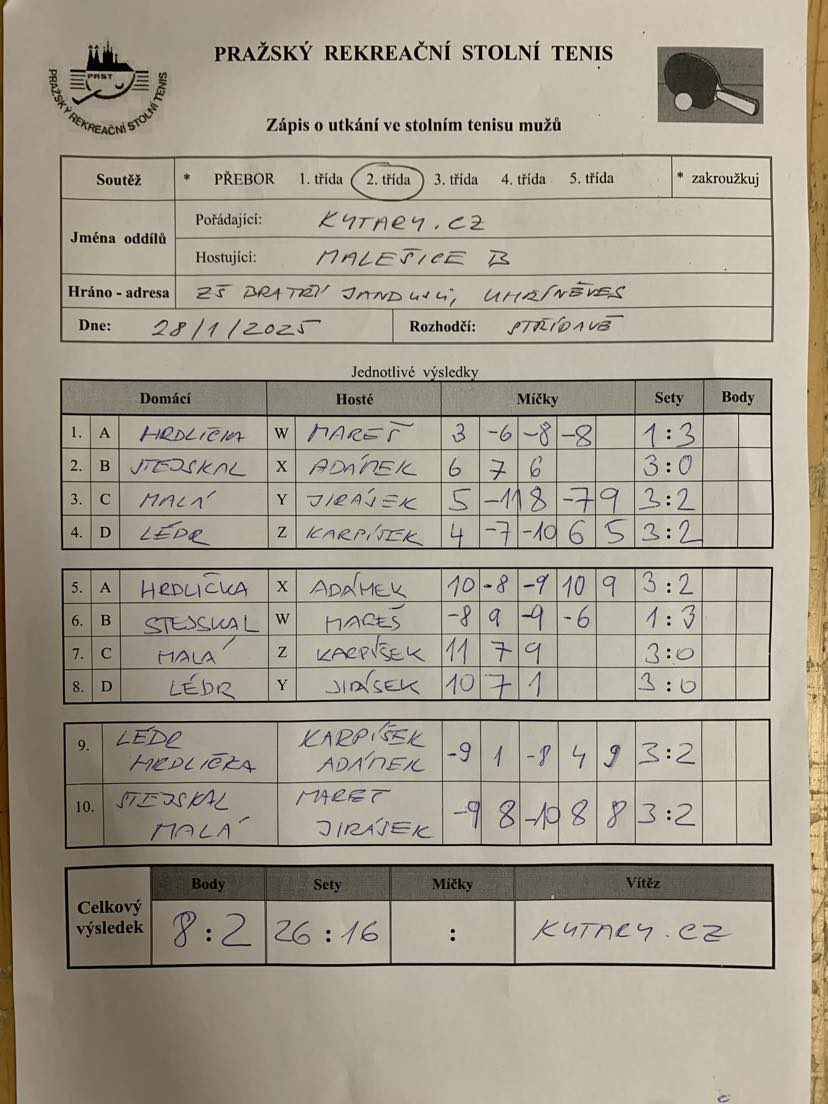 PRAŽSKÝ REKREAČNÍ STOLNÍ TENIS
PRST
PRAŽSKÝ REKREAČNÍ STOLNÍ TENIS
Zápis o utkání ve stolním tenisu mužů
Soutěž * PŘEBOR 1. třída 2. třída 3. třída 4. třída 5. třída * zakroužkuj
Jména oddílů
Pořádající: KYTARY.CZ
Hostující: MALEŠICE B
Hráno - adresa ZŠ BRATŘÍ JANDUSŮ, UHŘÍNĚVES
Dne: 28/1/2025 Rozhodčí: STŘÍDAVĚ
Jednotlivé výsledky
Domácí Hosté Míčky Sety Body
1. A HRDLIČKA W MAREŠ 3 -6 -8 -8 1:3
2. B STEJSKAL X ADÁMEK 6 7 6 3:0
3. C MALÁ Y JIRÁSEK 5 -11 8 -7 9 3:2
4. D LÉDR Z KARPÍŠEK 4 -7 -10 6 5 3:2
5. A HRDLIČKA X ADÁMEK 10 -8 -9 10 9 3:2
6. B STEJSKAL W MAREŠ -8 9 -9 -6 1:3
7. C MALÁ Z KARPÍŠEK 11 7 9 3:0
8. D LÉDR Y JIRÁSEK 10 7 1 3:0
9. LÉDR KARPÍŠEK -9 1 -8 4 9 3:2
HRDLIČKA ADÁMEK
10. STEJSKAL MAREŠ -9 8 -10 8 8 3:2
MALÁ JIRÁSEK
Celkový výsledek
Body Sety Míčky Vítěz
8:2 26:16 : KYTARY.CZ